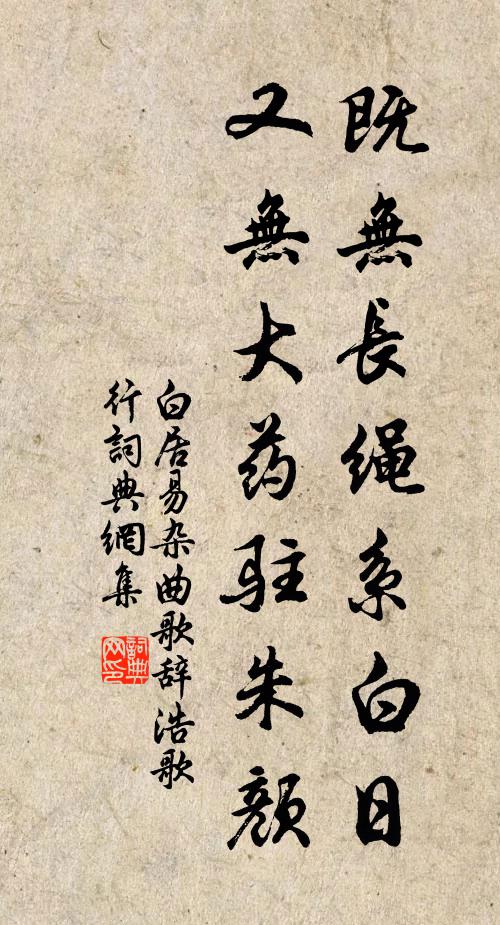 既無長绳系白日
又無大药驻朱颜
白居易杂曲歌辞浩歌
行詞典網集
詞典
网印